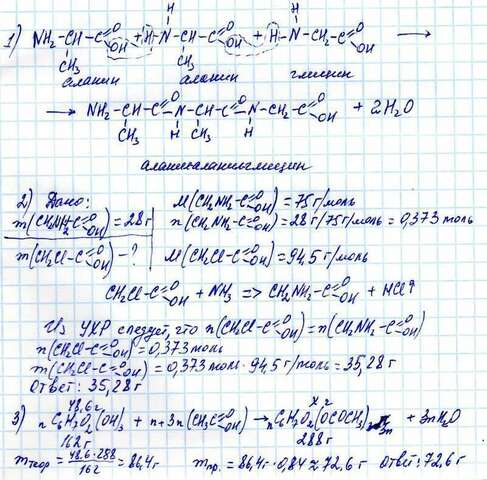 1) NH₂-CH-C=O OH + H-N-CH-C=O OH + H-N-CH₂-C=O OH ⟶
CH₃ H CH₃ H
аланин аланин глицин
⟶ NH₂-CH-C=O-N-CH-C=O-N-CH₂-C=O OH + 2H₂O
CH₃ H CH₃ H
аланилаланилглицин
2) Дано: M(CH₂NH₂-C=O OH) = 75 г/моль
m(CH₂NH₂-C=O OH) = 28 г n(CH₂NH₂-C=O OH) = 28 г/75 г/моль = 0,373 моль
m(CH₂Cl-C=O OH) - ? M(CH₂Cl-C=O OH) = 94,5 г/моль
CH₂Cl-C=O OH + NH₃ => CH₂NH₂-C=O OH + HCl↑
Из УХР следует, что n(CH₂Cl-C=O OH) = n(CH₂NH₂-C=O OH)
n(CH₂Cl-C=O OH) = 0,373 моль
m(CH₂Cl-C=O OH) = 0,373 моль · 94,5 г/моль = 35,28 г
Ответ: 35,28 г
48,6 г x г
3) n C₆H₇O₂(OH)₃ + n+3n(CH₃C=O OH) → n C₆H₇O₂(OCOCH₃)3n + 3nH₂O
162 г 288 г
m теор = 48,6·288/162 = 86,4 г m пр. = 86,4 г · 0,84 ≈ 72,6 г Ответ: 72,6 г